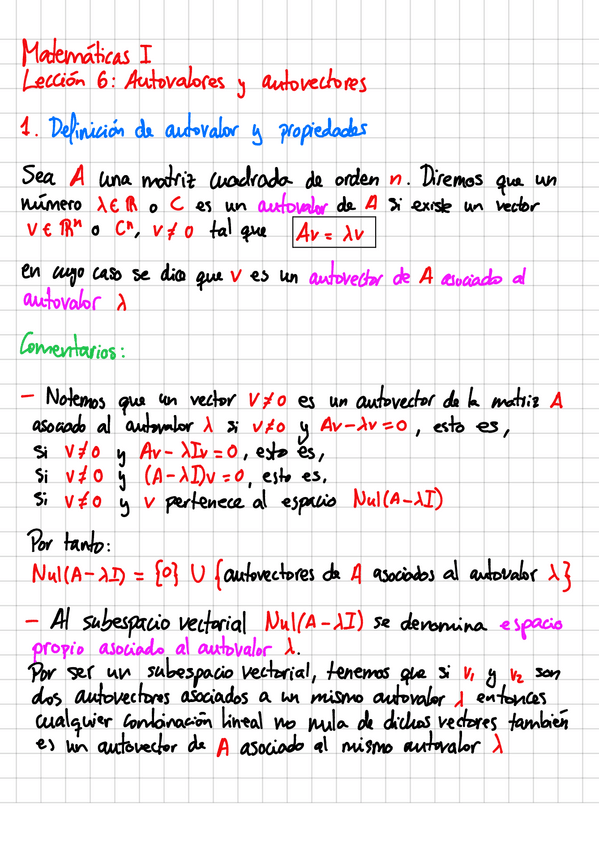 Matemáticas I
Lección 6: Autovalores y autovectores
1. Definición de autovalor y propiedades
Sea A una matriz cuadrada de orden n. Diremos que un
número λ∈ℝ o C es un autovalor de A si existe un vector
v∈ℝⁿ o Cⁿ, v≠0 tal que Av = λv
en cuyo caso se dice que v es un autovector de A asociado al
autovalor λ
Comentarios:
- Notemos que un vector v≠0 es un autovector de la matriz A
asociado al autovalor λ si v≠0 y Av-λv=0, esto es,
si v≠0 y Av-λIv=0, esto es,
si v≠0 y (A-λI)v=0, esto es,
si v≠0 y v pertenece al espacio Nul(A-λI)
Por tanto:
Nul(A-λI) = {0} ∪ {autovectores de A asociados al autovalor λ}
- Al subespacio vectorial Nul(A-λI) se denomina espacio
propio asociado al autovalor λ.
Por ser un subespacio vectorial, tenemos que si v₁ y v₂ son
dos autovectores asociados a un mismo autovalor λ entonces
cualquier combinación lineal no nula de dichos vectores también
es un autovector de A asociado al mismo autovalor λ